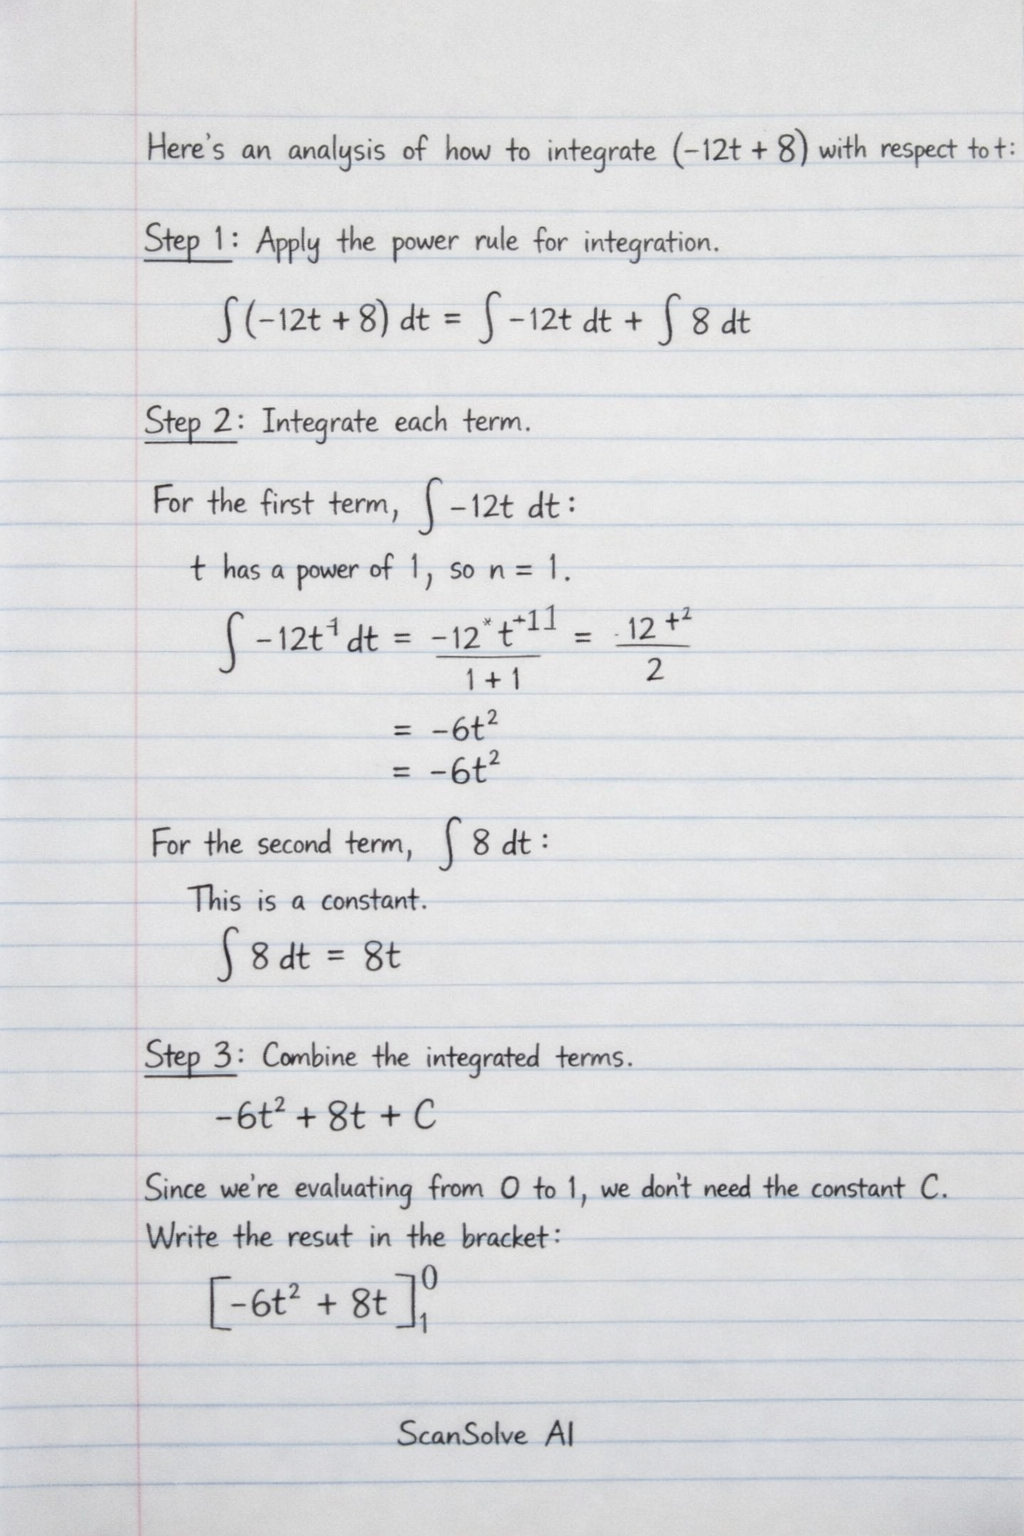 Here's an analysis of how to integrate (-12t + 8) with respect to t:
Step 1: Apply the power rule for integration.
∫(-12t + 8) dt = ∫ -12t dt + ∫ 8 dt
Step 2: Integrate each term.
For the first term, ∫ -12t dt:
t has a power of 1, so n = 1.
∫ -12t¹ dt = -12*t⁺¹¹ / 1 + 1 = 12 t² / 2
= -6t²
= -6t²
For the second term, ∫ 8 dt:
This is a constant.
∫ 8 dt = 8t
Step 3: Combine the integrated terms.
-6t² + 8t + C
Since we're evaluating from 0 to 1, we don't need the constant C.
Write the resut in the bracket:
[-6t² + 8t]⁰₁
ScanSolve AI